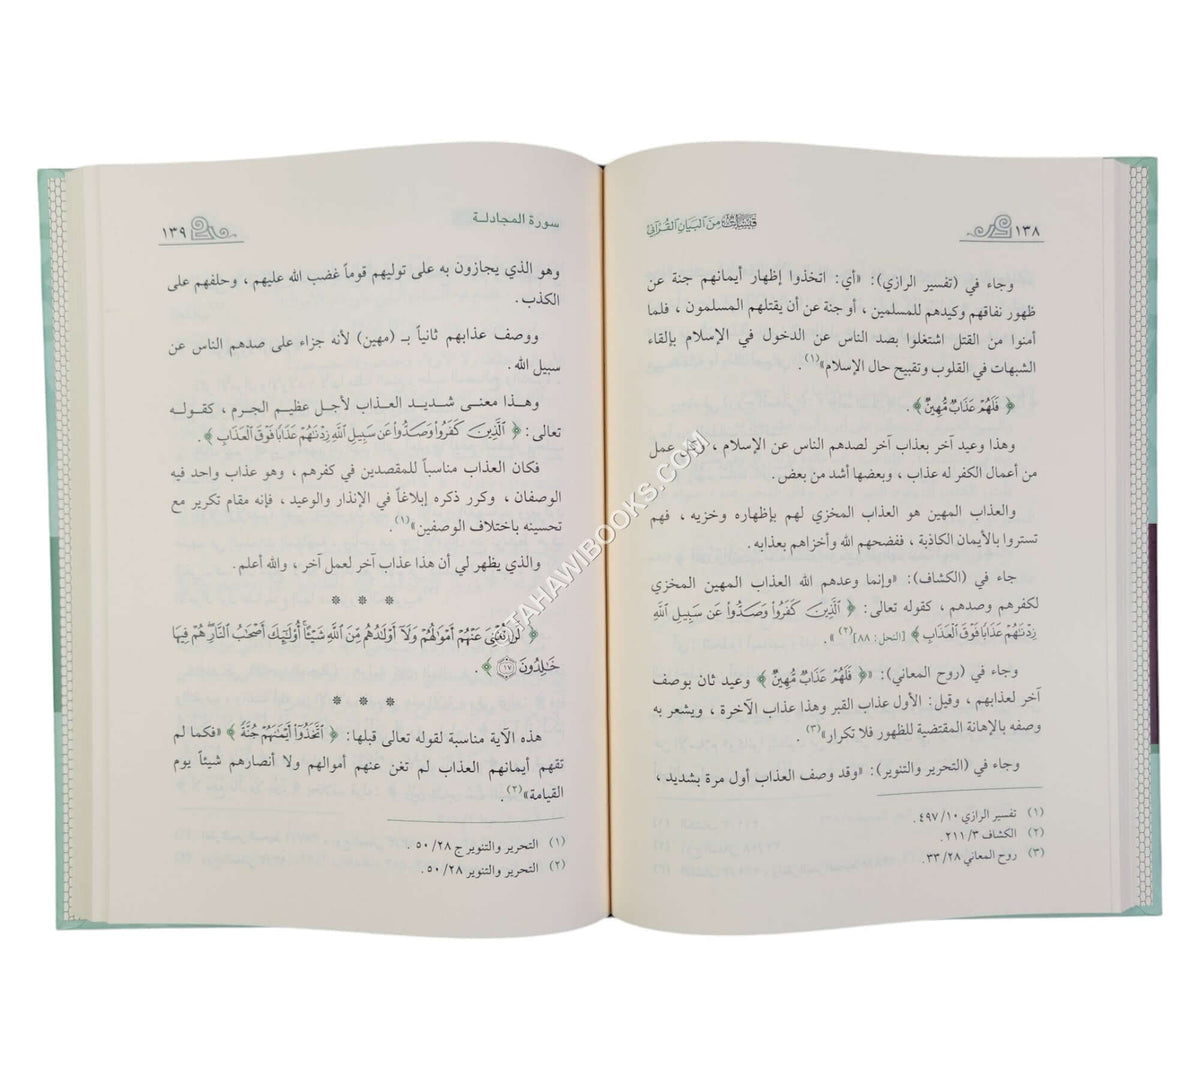 ١٣٨
قبسات من البيان القرآني
وجاء في (تفسير الرازي): «أي: اتخذوا إظهار أيمانهم جنة عن
ظهور نفاقهم وكيدهم للمسلمين ، أو جنة عن أن يقتلهم المسلمون ، فلما
أمنوا من القتل اشتغلوا بصد الناس عن الدخول في الإسلام بإلقاء
الشبهات في القلوب وتقبيح حال الإسلام»(١) .
﴿ فَلَهُمْ عَذَابٌ مُّهِينٌ ﴾ .
وهذا وعيد آخر بعذاب آخر لصدهم الناس عن الإسلام ، عمل
من أعمال الكفر له عذاب ، وبعضها أشد من بعض .
والعذاب المهين هو العذاب المخزي لهم بإظهاره وخزيه ، فهم
تستروا بالأيمان الكاذبة ، ففضحهم الله وأخزاهم بعذابه .
جاء في (الكشاف): «وإنما وعدهم الله العذاب المهين المخزي
لكفرهم وصدهم ، كقوله تعالى: ﴿ ٱلَّذِينَ كَفَرُوا۟ وَصَدُّوا۟ عَن سَبِيلِ ٱللَّهِ
زِدْنَٰهُمْ عَذَابًا فَوْقَ ٱلْعَذَابِ ﴾ [النحل: ٨٨](٢)» .
وجاء في (روح المعاني): «﴿ فَلَهُمْ عَذَابٌ مُّهِينٌ ﴾ وعيد ثان بوصف
آخر لعذابهم ، وقيل: الأول عذاب القبر وهذا عذاب الآخرة ، ويشعر به
وصفه بالإهانة المقتضية للظهور فلا تكرار»(٣) .
وجاء في (التحرير والتنوير): «وقد وصف العذاب أول مرة بشديد ،
(١) تفسير الرازي ١٠/ ٤٩٧ .
(٢) الكشاف ٣/ ٢١١ .
(٣) روح المعاني ٢٨/ ٣٣ .
سورة المجادلة
١٣٩
وهو الذي يجازون به على توليهم قوماً غضب الله عليهم ، وحلفهم على
الكذب .
ووصف عذابهم ثانياً بـ (مهين) لأنه جزاء على صدهم الناس عن
سبيل الله .
وهذا معنى شديد العذاب لأجل عظيم الجرم ، كقوله
تعالى: ﴿ ٱلَّذِينَ كَفَرُوا۟ وَصَدُّوا۟ عَن سَبِيلِ ٱللَّهِ زِدْنَٰهُمْ عَذَابًا فَوْقَ ٱلْعَذَابِ ﴾ .
فكان العذاب مناسباً للمقصدين في كفرهم ، وهو عذاب واحد فيه
الوصفان ، وكرر ذكره إبلاغاً في الإنذار والوعيد ، فإنه مقام تكرير مع
تحسينه باختلاف الوصفين»(١) .
والذي يظهر لي أن هذا عذاب آخر لعمل آخر ، والله أعلم .
* * *
﴿ لَّن تُغْنِىَ عَنْهُمْ أَمْوَٰلُهُمْ وَلَآ أَوْلَٰدُهُم مِّنَ ٱللَّهِ شَيْـًٔا ۚ أُو۟لَٰٓئِكَ أَصْحَٰبُ ٱلنَّارِ ۖ هُمْ فِيهَا
خَٰلِدُونَ ١٧ ﴾ .
* * *
هذه الآية مناسبة لقوله تعالى قبلها: ﴿ ٱتَّخَذُوٓا۟ أَيْمَٰنَهُمْ جُنَّةً ﴾ «فكما لم
تقهم أيمانهم العذاب لم تغن عنهم أموالهم ولا أنصارهم شيئاً يوم
القيامة»(٢) .
(١) التحرير والتنوير ج ٢٨/ ٥٠ .
(٢) التحرير والتنوير ٢٨/ ٥٠ .
TAHAWIBOOKS.COM